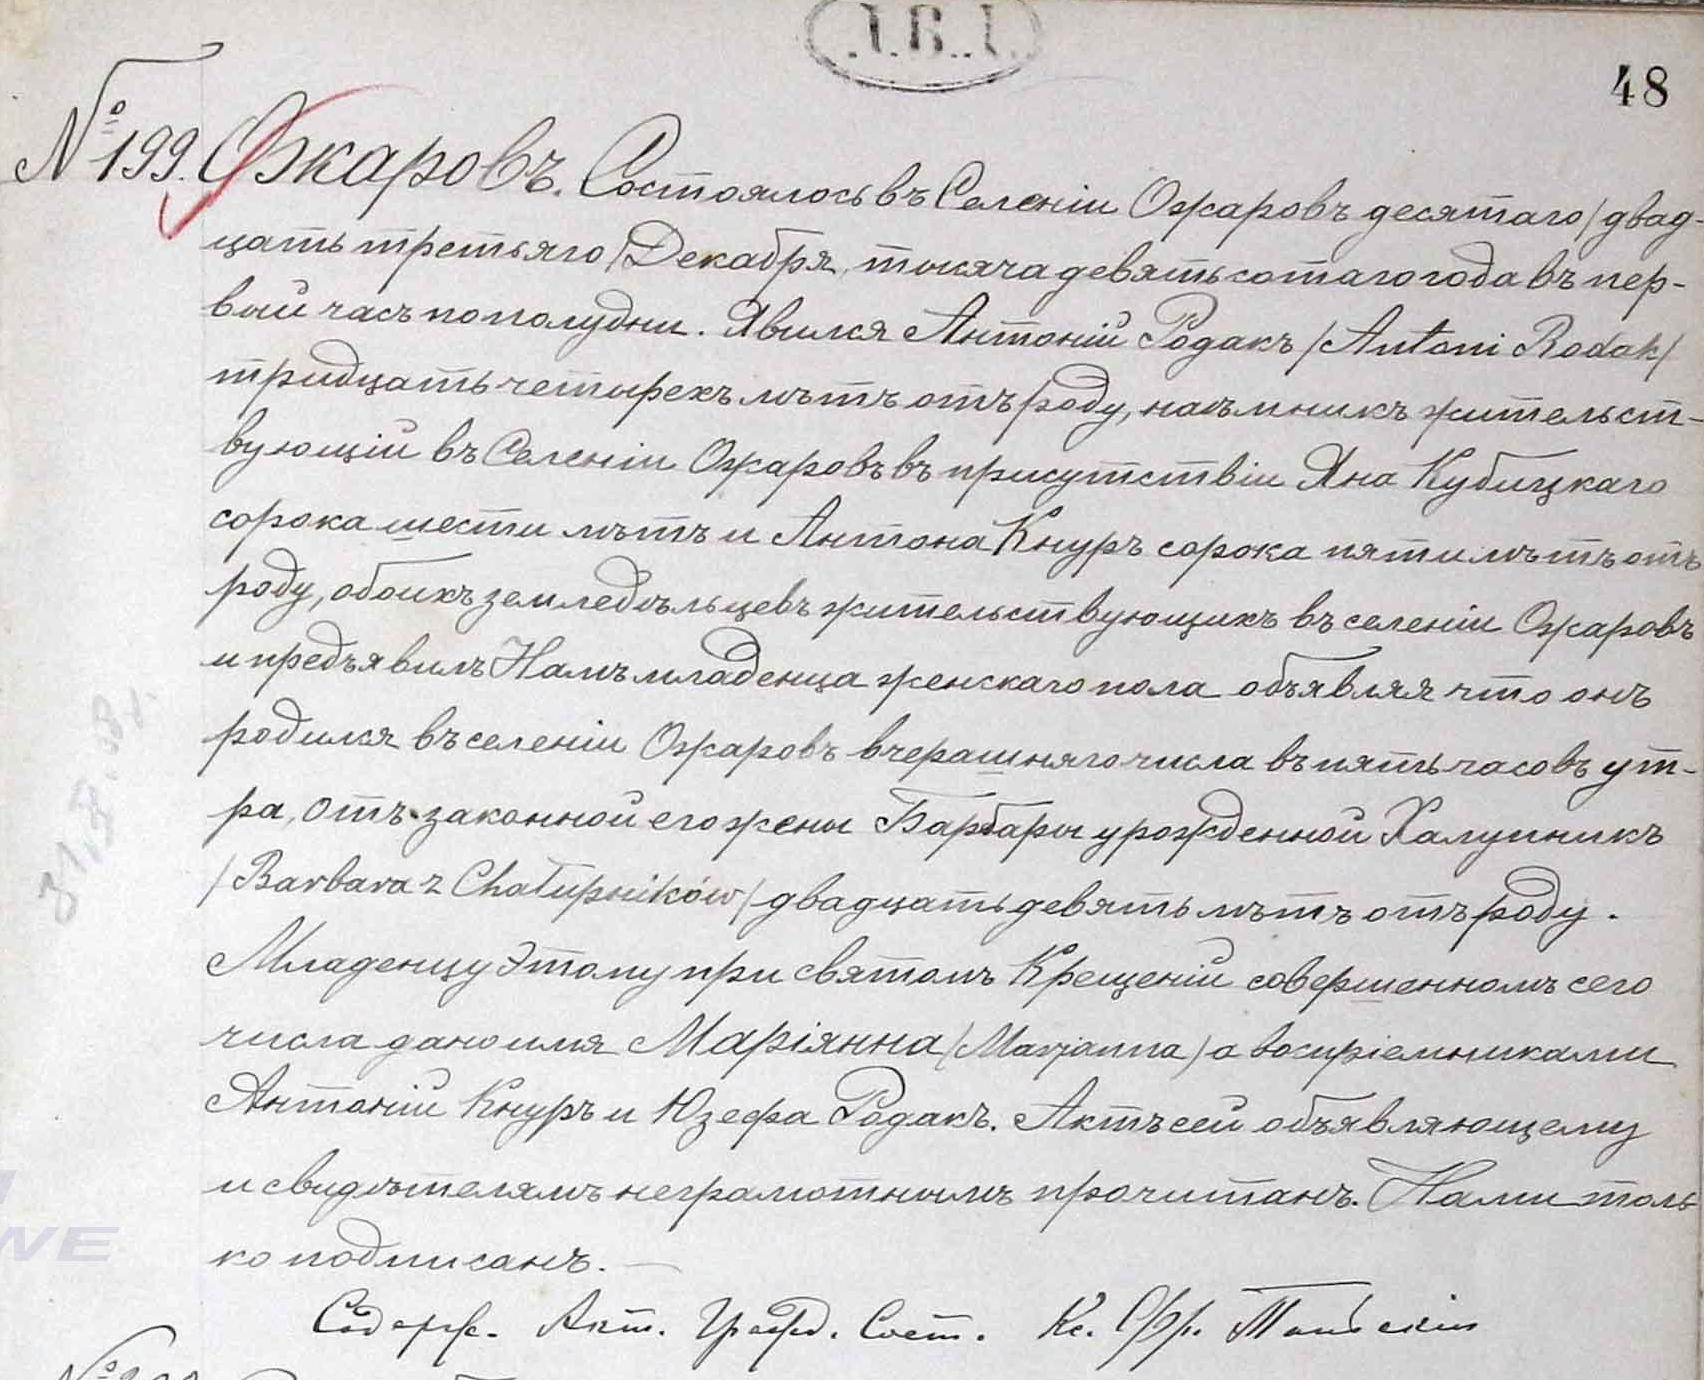 48
№ 199. Ожаровъ. Состоялось въ Селеніи Ожаровъ десятаго /двад-
цать третьяго/ Декабря, тысяча девятьсотаго года въ пер-
вый часъ пополудни. Явился Антоній Родакъ /Antoni Rodak/
тридцать четырехъ лѣтъ отъ роду, наемникъ жительст-
вующій въ Селеніи Ожаровъ въ присутствіи Яна Кубицкаго
сорока шести лѣтъ и Антона Кнуръ сорока пяти лѣтъ отъ
роду, обоихъ земледѣльцевъ жительствующихъ въ селеніи Ожаровъ
и предъявилъ Намъ младенца женскаго пола объявляя что онъ
родился въ селеніи Ожаровъ вчерашняго числа въ пять часовъ ут-
ра, отъ законной его жены Барбары урожденной Халупникъ
/Barbara z Chałupników/ двадцать девять лѣтъ отъ роду.
Младенцу этому при святомъ Крещеніи совершенномъ сего
числа дано имя Маріянна /Marjanna/ а воспріемниками
Антоній Кнуръ и Юзефа Родакъ. Актъ сей объявляющему
и свидѣтелямъ неграмотнымъ прочитанъ. Нами толь
ко подписанъ. —
Содерж. Акт. Гражд. Сост. Кс. Фр.